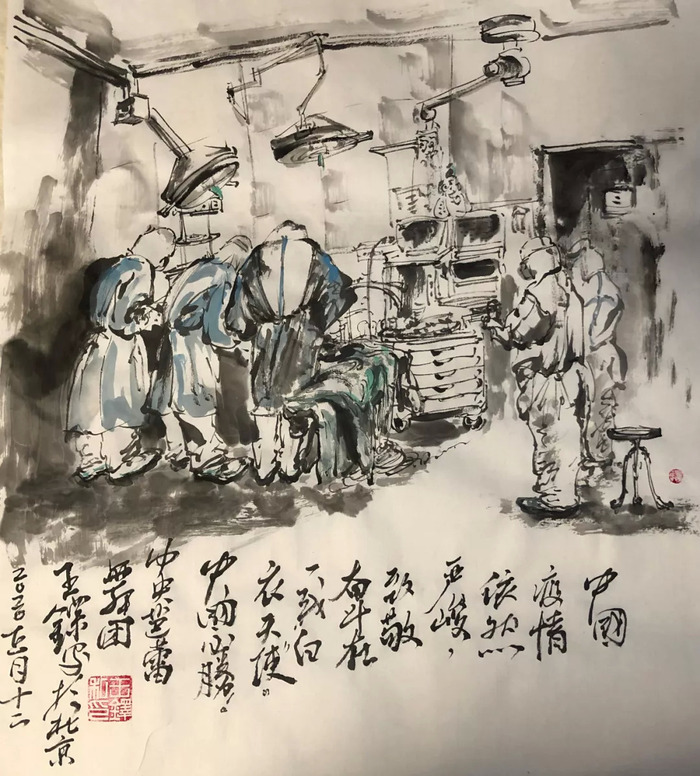 中國
疫情
依然
严峻，
致敬
奋斗在
一线白
衣天使。
中國必勝。
中央芭蕾
舞团
王 写于北京
二〇二〇 月十二